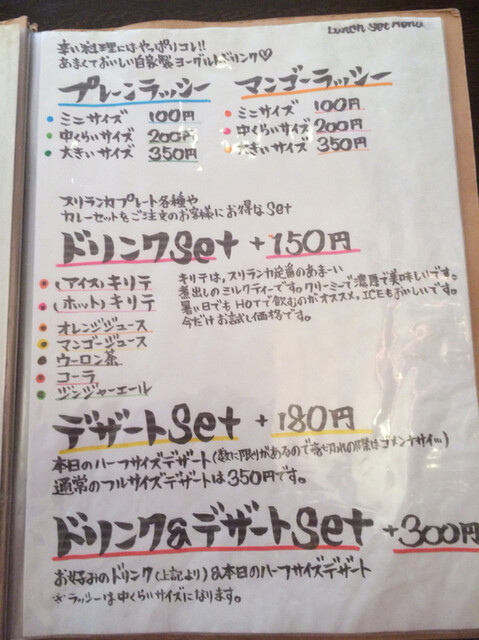 Lunch Set Menu
辛い料理にはやっぱりコレ!!
あまくておいしい自家製ヨーグルトドリンク♡
プレーンラッシー
・ミニサイズ 100円
・中くらいサイズ 200円
・大きいサイズ 350円
マンゴーラッシー
・ミニサイズ 100円
・中くらいサイズ 200円
・大きいサイズ 350円
スリランカプレート各種や
カレーセットをご注文のお客様にお得なset
ドリンクset +150円
・(アイス)キリテ
・(ホット)キリテ
・オレンジジュース
・マンゴージュース
・ウーロン茶
・コーラ
・ジンジャーエール
キリテは、スリランカ定番のあまーい
煮出しのミルクティーです。クリーミーで濃厚で美味しいです。
暑い日でもHOTで飲むのがオススメ。ICEもおいしいです。
今だけお試し価格です。
デザートset +180円
本日のハーフサイズデザート(数に限りがあるので売り切れの際はゴメンナサイ…)
通常のフルサイズデザートは350円です。
ドリンク&デザートset +300円
お好みのドリンク(上記より)&本日のハーフサイズデザート
※ラッシーは中くらいサイズになります。